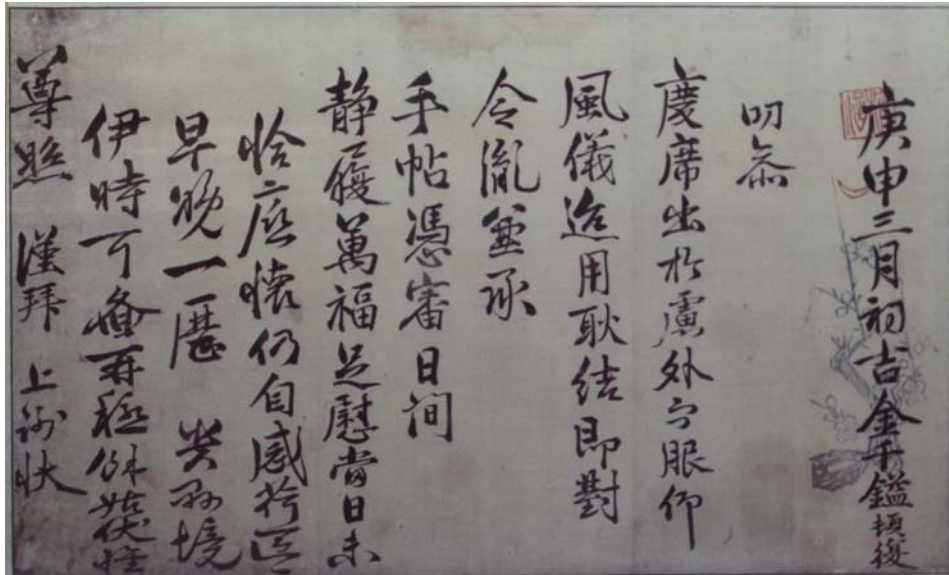 庚申三月初吉金千鎰頓復
叨忝
慶席出於慮外眼仰
風儀迨用耿結即對
令胤兼承
手帖憑審日間
靜履萬福足慰當日未
恰底懷仍自感荷區
早晚一歷 貴縣境
伊時可再穩餘伏惟
尊照 謹拜 上謝狀